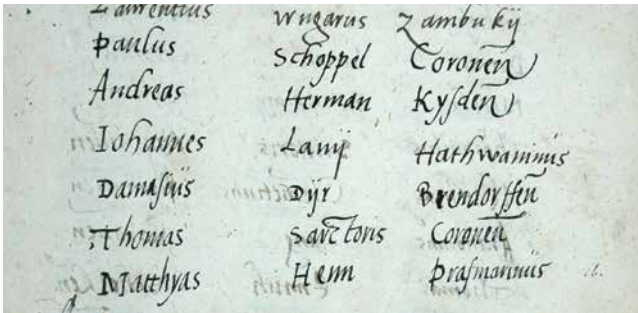 Laurentius Wngarus Zambukij
Paulus Schoppel Coronen̄
Andreas Herman Kysden̄
Iohannes Lanij Hathwaninus
Damasius Dijr Brendorffen̄
Thomas Sarctoris Coronen̄
Matthyas Henn Prasmannus